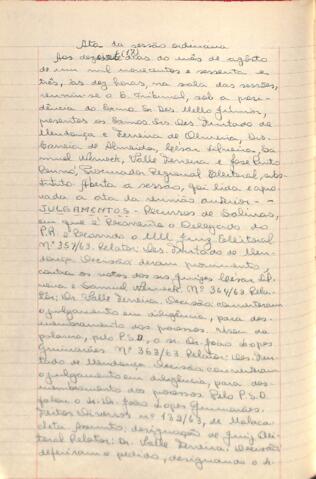 Ata da sessão ordinaria
Aos dezessete (17) dias do mês de agôsto
de um mil novecentos e sessenta e
três, às dez horas, na sala das sessões,
reuniu-se o E. Tribunal, sob a presi-
dência do Exmo Sr. Des. Mello Júnior,
presentes os Exmos Srs. Des. Furtado de
Mendonça e Ferreira de Oliveira, Drs.
Correia de Almeida, César Silveira, Sa
muel Werneck, Valle Ferreira e José Pinto
Procurador Regional Eleitoral, subs-
tituto. Aberta a sessão, foi lida e apro-
vada a ata da reunião anterior. -
JULGAMENTOS - Recursos de Salinas,
em que é Recorrente o Delegado do
P.R. e Recorrido o MM Juiz Eleitoral
Nº 357/63. Relator: Des. Furtado de Men-
donça. Decisão: deram provimento,
contra os votos dos srs. juízes César Sil-
veira e Samuel Werneck. Nº 364/63. Rela-
tor: Dr. Valle Ferreira. Decisão: converteram
o julgamento em diligência, para des-
membramento dos processos. Usou da
palavra, pelo P.S.D., o sr. Dr. João Lopes
Guimarães. Nº 363/63. Relator: Des. Fur-
tado de Mendonça. Decisão: converteram
o julgamento em diligência, para des-
membramento dos processos. Pelo P.S.D.
falou o sr. Dr. João Lopes Guimarães.
Feitos Diversos nº 132/63, de Malaca
cheta. Assunto: designação de Juiz Elei
toral. Relator: Dr. Valle Ferreira. Decisão:
deferiram o pedido, designando o d.